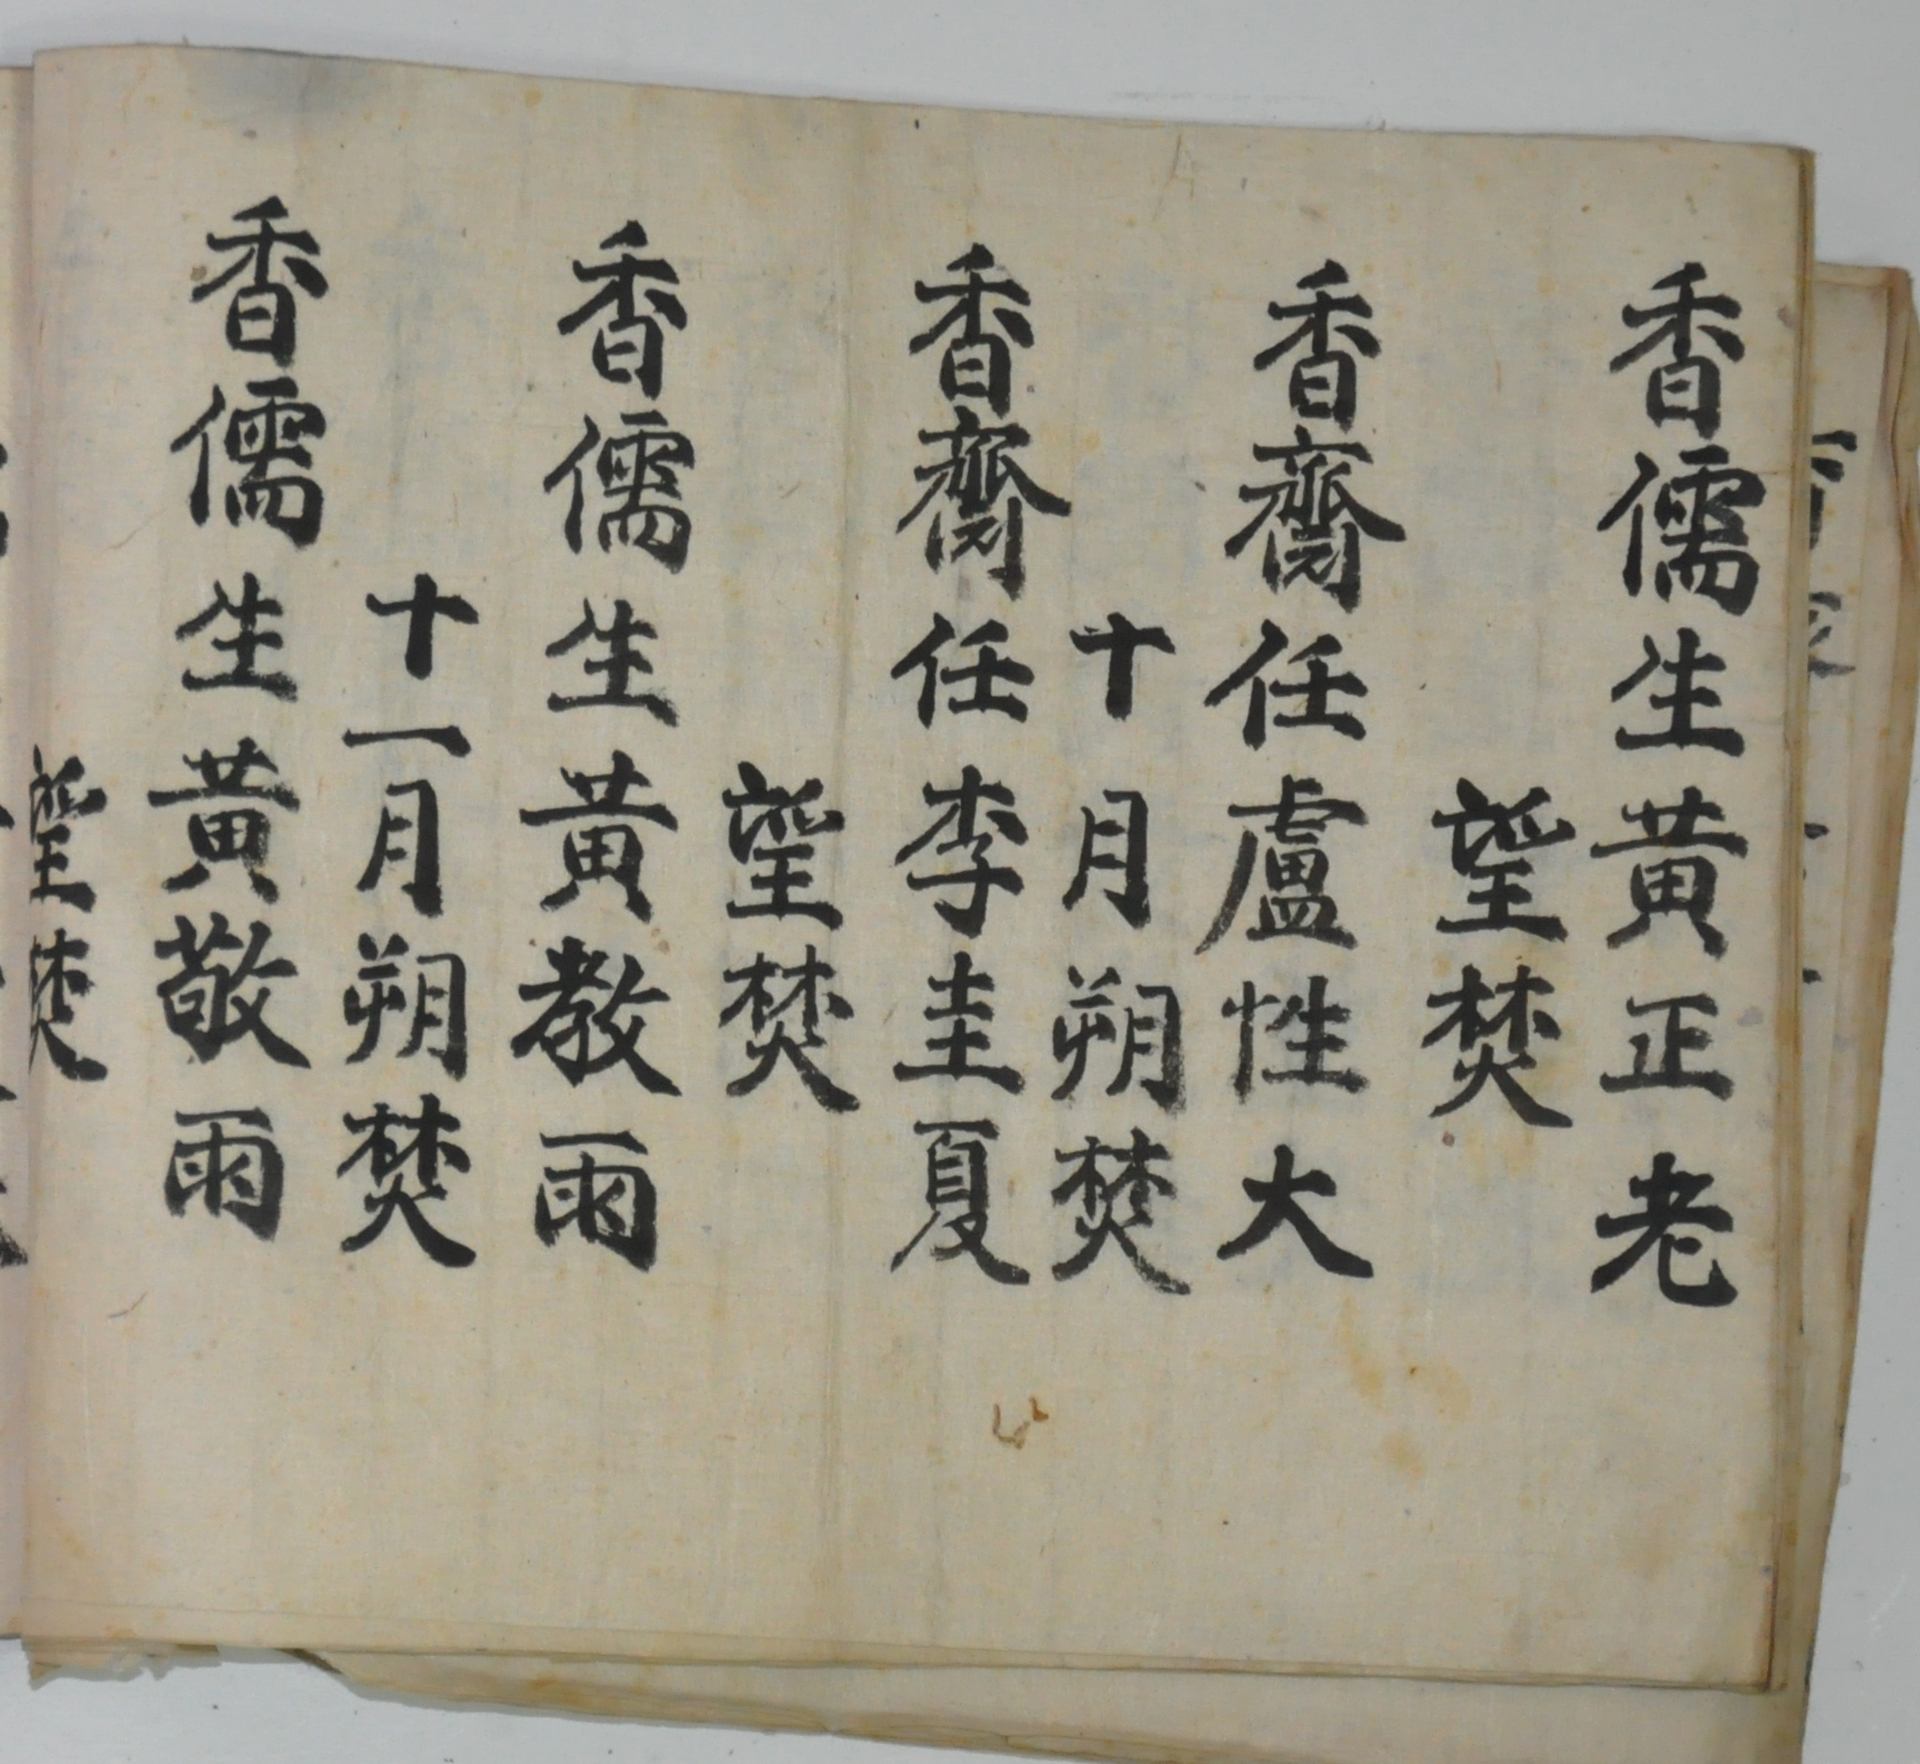 香儒生黃正老
望焚
香齋任盧性大
十月朔焚
香齋任李圭夏
望焚
香儒生黃敎雨
十一月朔焚
香儒生黃敬雨
望焚